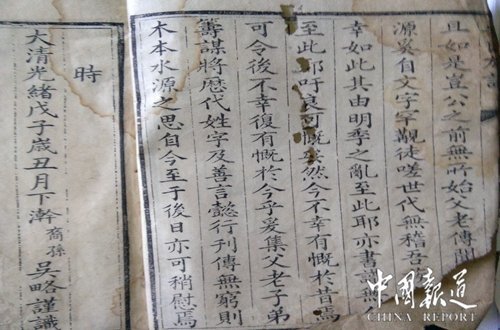 且如是豈公之前無所始父老傳聞
源奚自文字罕覯徒嗟世代無稽吾
幸如此其由明季之亂至此耶亦書
至此耶吁良可慨矣然今不幸有慨於昔焉
可令後不幸復有慨於今乎爰集父老子弟
籌謀將歷代姓字及善言懿行刊傳無窮則
木本水源之思自今至于後日亦可稍慰焉
時
大清光緒戊子歲丑月下澣裔孫吳略謹識
中國報道
CHINA REPORT